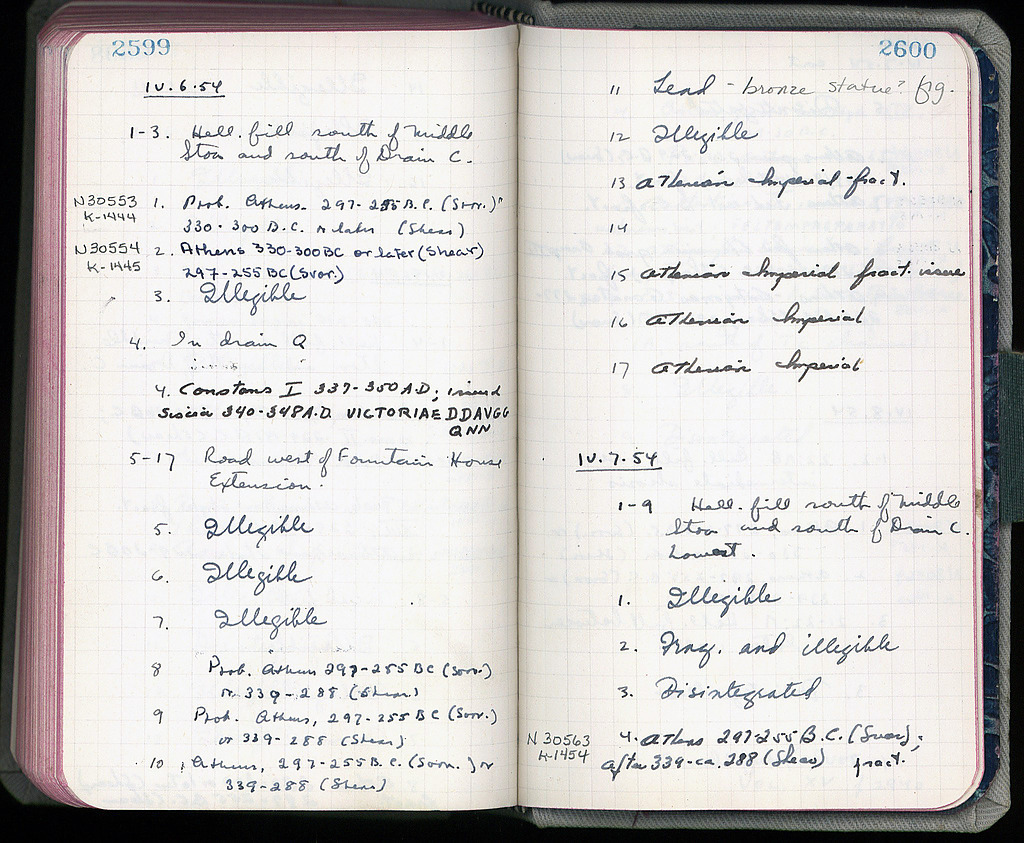 2599
IV.6.54
1-3. Hell. fill south of Middle
Stoa and south of Drain C.
N30553
K-1444
1. Prob. Athens. 297-255 B.C. (Svor.)
330-300 B.C. or later (Shear)
N30554
K-1445
2. Athens 330-300 BC or later (Shear)
297-255 BC (Svor.)
3. Illegible
4. In drain Q
4. Constans I 337-350 A.D; issued
Siscia 340-348 A.D. VICTORIAE DDAVGG
QNN
5-17 Road west of Fountain House
Extension.
5. Illegible
6. Illegible
7. Illegible
8 Prob. Athens 297-255 BC (Svor.)
or 339-288 (Shear)
9 Prob. Athens, 297-255 BC (Svor.)
or 339-288 (Shear)
10 Athens, 297-255 B.C. (Svor.) or
339-288 (Shear)
2600
11 Lead - bronze statue? frg.
12 Illegible
13 Athenian Imperial - fract.
14
15 Athenian Imperial fract. issue
16 Athenian Imperial
17 Athenian Imperial
IV.7.54
1-9 Hell. fill south of Middle
Stoa and south of Drain C.
Lowest.
1. Illegible
2. Frag. and illegible
3. Disintegrated
N 30563
K-1454
4. Athens 297-255 B.C. (Svor.);
After 339-ca. 288 (Shear) fract.